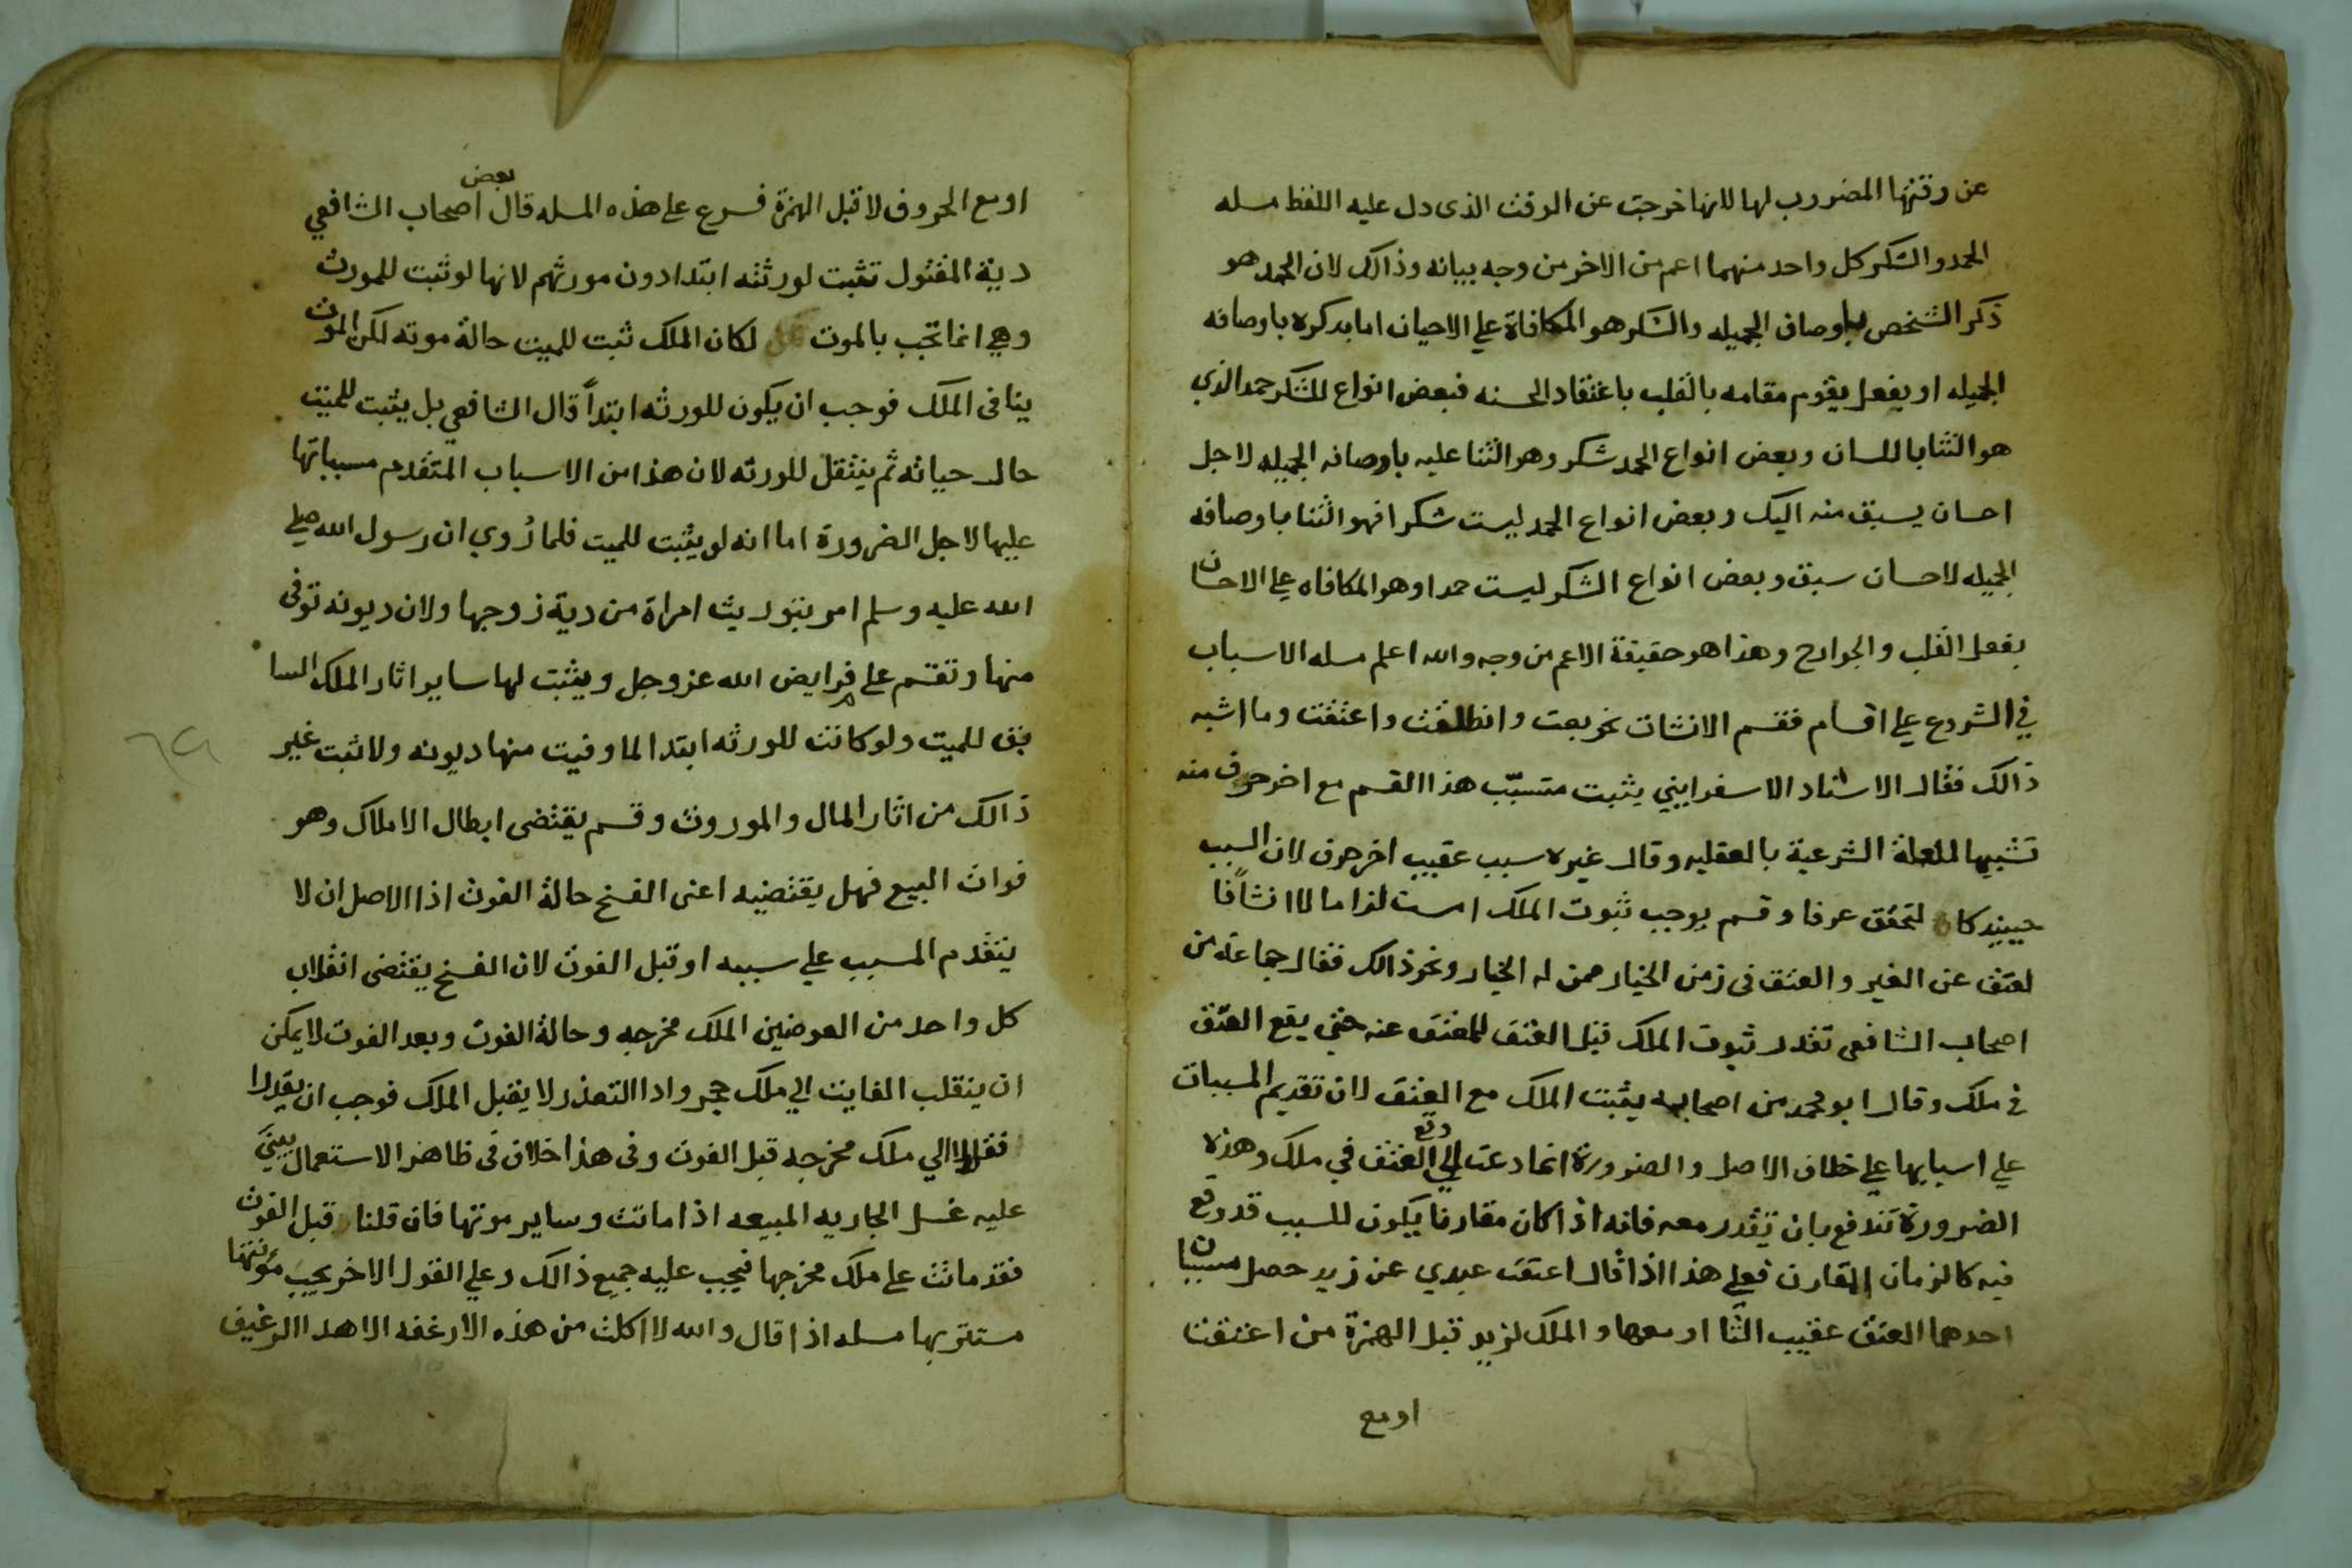 عن وقتها المضروب لها لانها خرجت عن الوقت الذى دل عليه اللفظ مسله
الحمد والشكر كل واحد منهما اعم من الاخر من وجه بيانه وذالك لان الحمد هو
ذكر الشخص باوصاف الجميله والشكر هو المكافاة علي الاحيان اما بدكره باوصافه
الجميله او بفعل يقوم مقامه بالقلب باعتقاد الحسنه فبعض انواع الشكر حمد الذي
هو الثنا باللسان وبعض انواع الحمد شكر وهو الثنا عليه باوصافه الجميله لاجل
احسان يسبق منه اليك وبعض انواع الحمد ليست شكرا فهو الثنا باوصافه
الجميله لاحسان سبق وبعض انواع الشكر ليست حمدا وهو المكافاه علي الاحسان
بفعل القلب والجوارح وهذا هو حقيقة الاعم من وجه والله اعلم مسله الاسباب
في الشروع علي اقسام فقسم الانشات نحو بعت وانطلقت واعتقت وما اشبه
ذالك فقال الاستاد الاسفرايني يثبت متسبّب هذا القسم مع اخر حرف منه
تشبيها للعلة الشرعية بالعقليه وقال غيره سبب عقيب اخر حرف لان السبب
حينيد كان لتحقق عرفا وقسم يوجب ثبوت الملك
لعتق عن الغير والعتق فى زمن الخيار ممن له الخيار ونحو ذالك فقال جماعة من
اصحاب الشافعى تقدر ثبوت الملك قبل العتق للمعتق عنه حتي يقع العتق
في ملك وقال ابو محمد من اصحابه يثبت الملك مع العتق لان تقديم المسببات
علي اسبابها علي خلاف الاصل والضرورة انما دعت الي وقع العتق في ملك وهذه
الضرورة تندفع بان تقدر معه فانه اذا كان مقارنا يكون للسبب قد وقع
فيه كالزمان المقارن فعلي هذا اذا قال اعتقت عبدي عن زيد حصل مسببان
احدهما العتق عقيب التا او معها والملك لزيد قبل الهمزة من اعتقنا
او مع
او مع الحروف لا قبل الهمزة فرع على هذه المسله قال بعض اصحاب الشافعي
دية المقتول تثبت لورثته ابتدا دون مورثهم لانها لو ثبت للمورث
وهي انما تجب بالموت لكان الملك ثبت للميت حالة موته لكن الموت
ينافى الملك فوجب ان يكون للورثه ابتداً قال الشافعي بل يثبت للميت
حال حياته ثم ينتقل للورثه لان هذا من الاسباب المتقدم مسبباتها
عليها لاجل الضرورة اما انه لو يثبت للميت فلما رُوي ان رسول الله صلي
الله عليه وسلم امر بتوريث امراة من دية زوجها ولان ديونه توفى
منها وتقسم على فرايض الله عز وجل ويثبت لها ساير اثار الملك السا
بق للميت ولو كانت للورثه ابتدا لما وفيت منها ديونه ولا ثبت غير
ذالك من اثار المال والموروث وقسم يقتضى ابطال الاملاك وهو
فوات البيع فهل يقتضيه اعنى الفسخ حالة الفوت اذا الاصل ان لا
يتقدم المسبب علي سببه او قبل الفوت لان الفسخ يقتضى انقلاب
كل واحد من العوضين الملك مخرجه وحالة الفوت وبعد الفوت لا يمكن
ان ينقلب الفايت الي ملك حجر واذا التعذر لا يقبل الملك فوجب ان يقدرا
الي ملك مخرجه قبل الفوت وفى هذا خلاف فى ظاهر الاستعمال يبني
عليه غسل الجاريه المبيعه اذا ماتت وساير موتها فان قلنا قبل الفوت
فقد ماتت على ملك مخرجها فيجب عليه جميع ذالك وعلي القول الاخر يجب مؤنتها
مسله اذا قال والله لا اكلت من هذه الارغفه الا هدا الرغيف